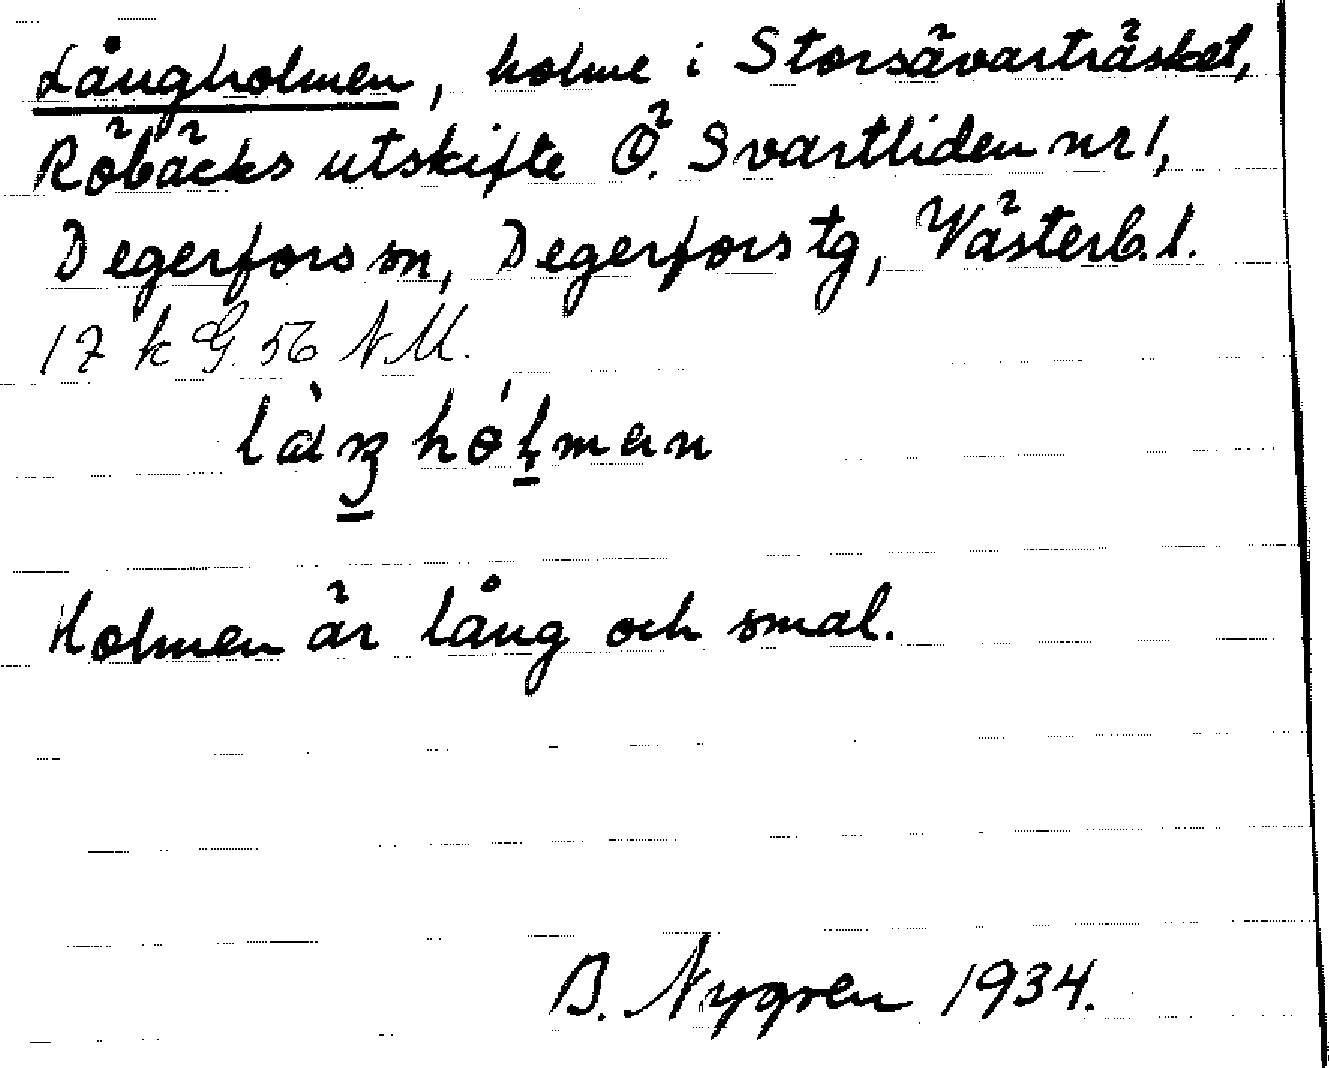 Långholmen, holme i Storsävarträsket,
Röbäcks utskifte Ö. Svartliden nr 1,
Degerfors sn, Degerfors tg, Västerb. l.
17 k G. 56 N M.
Holmen är lång och smal.
B. Nygren 1934.